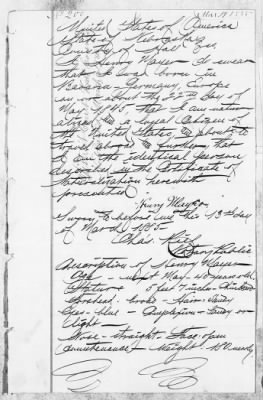 United States of America
State of Nebraska
County of Hall SS
I Henry Mayer do swear
that I was born in
Bavaria Germany, Europe
on or about the 22nd day of
May 1845 that I am
a legal Citizen of
the United States, & about to
travel abroad & further, that
I am the identical person
described in the Certificate of
Naturalization herewith
presented
Henry Mayer
Sworn to before me this 13th day
of March 1885
Chas. Rief
Notary Public
Description of Henry Mayer
Age next May 40 years old
Stature 5 feet 7 inches
Forehead Hair Sandy
Eyes - blue - Complexion - Sandy or
Light -
Nose - Straight - Face
Countenance - Weight